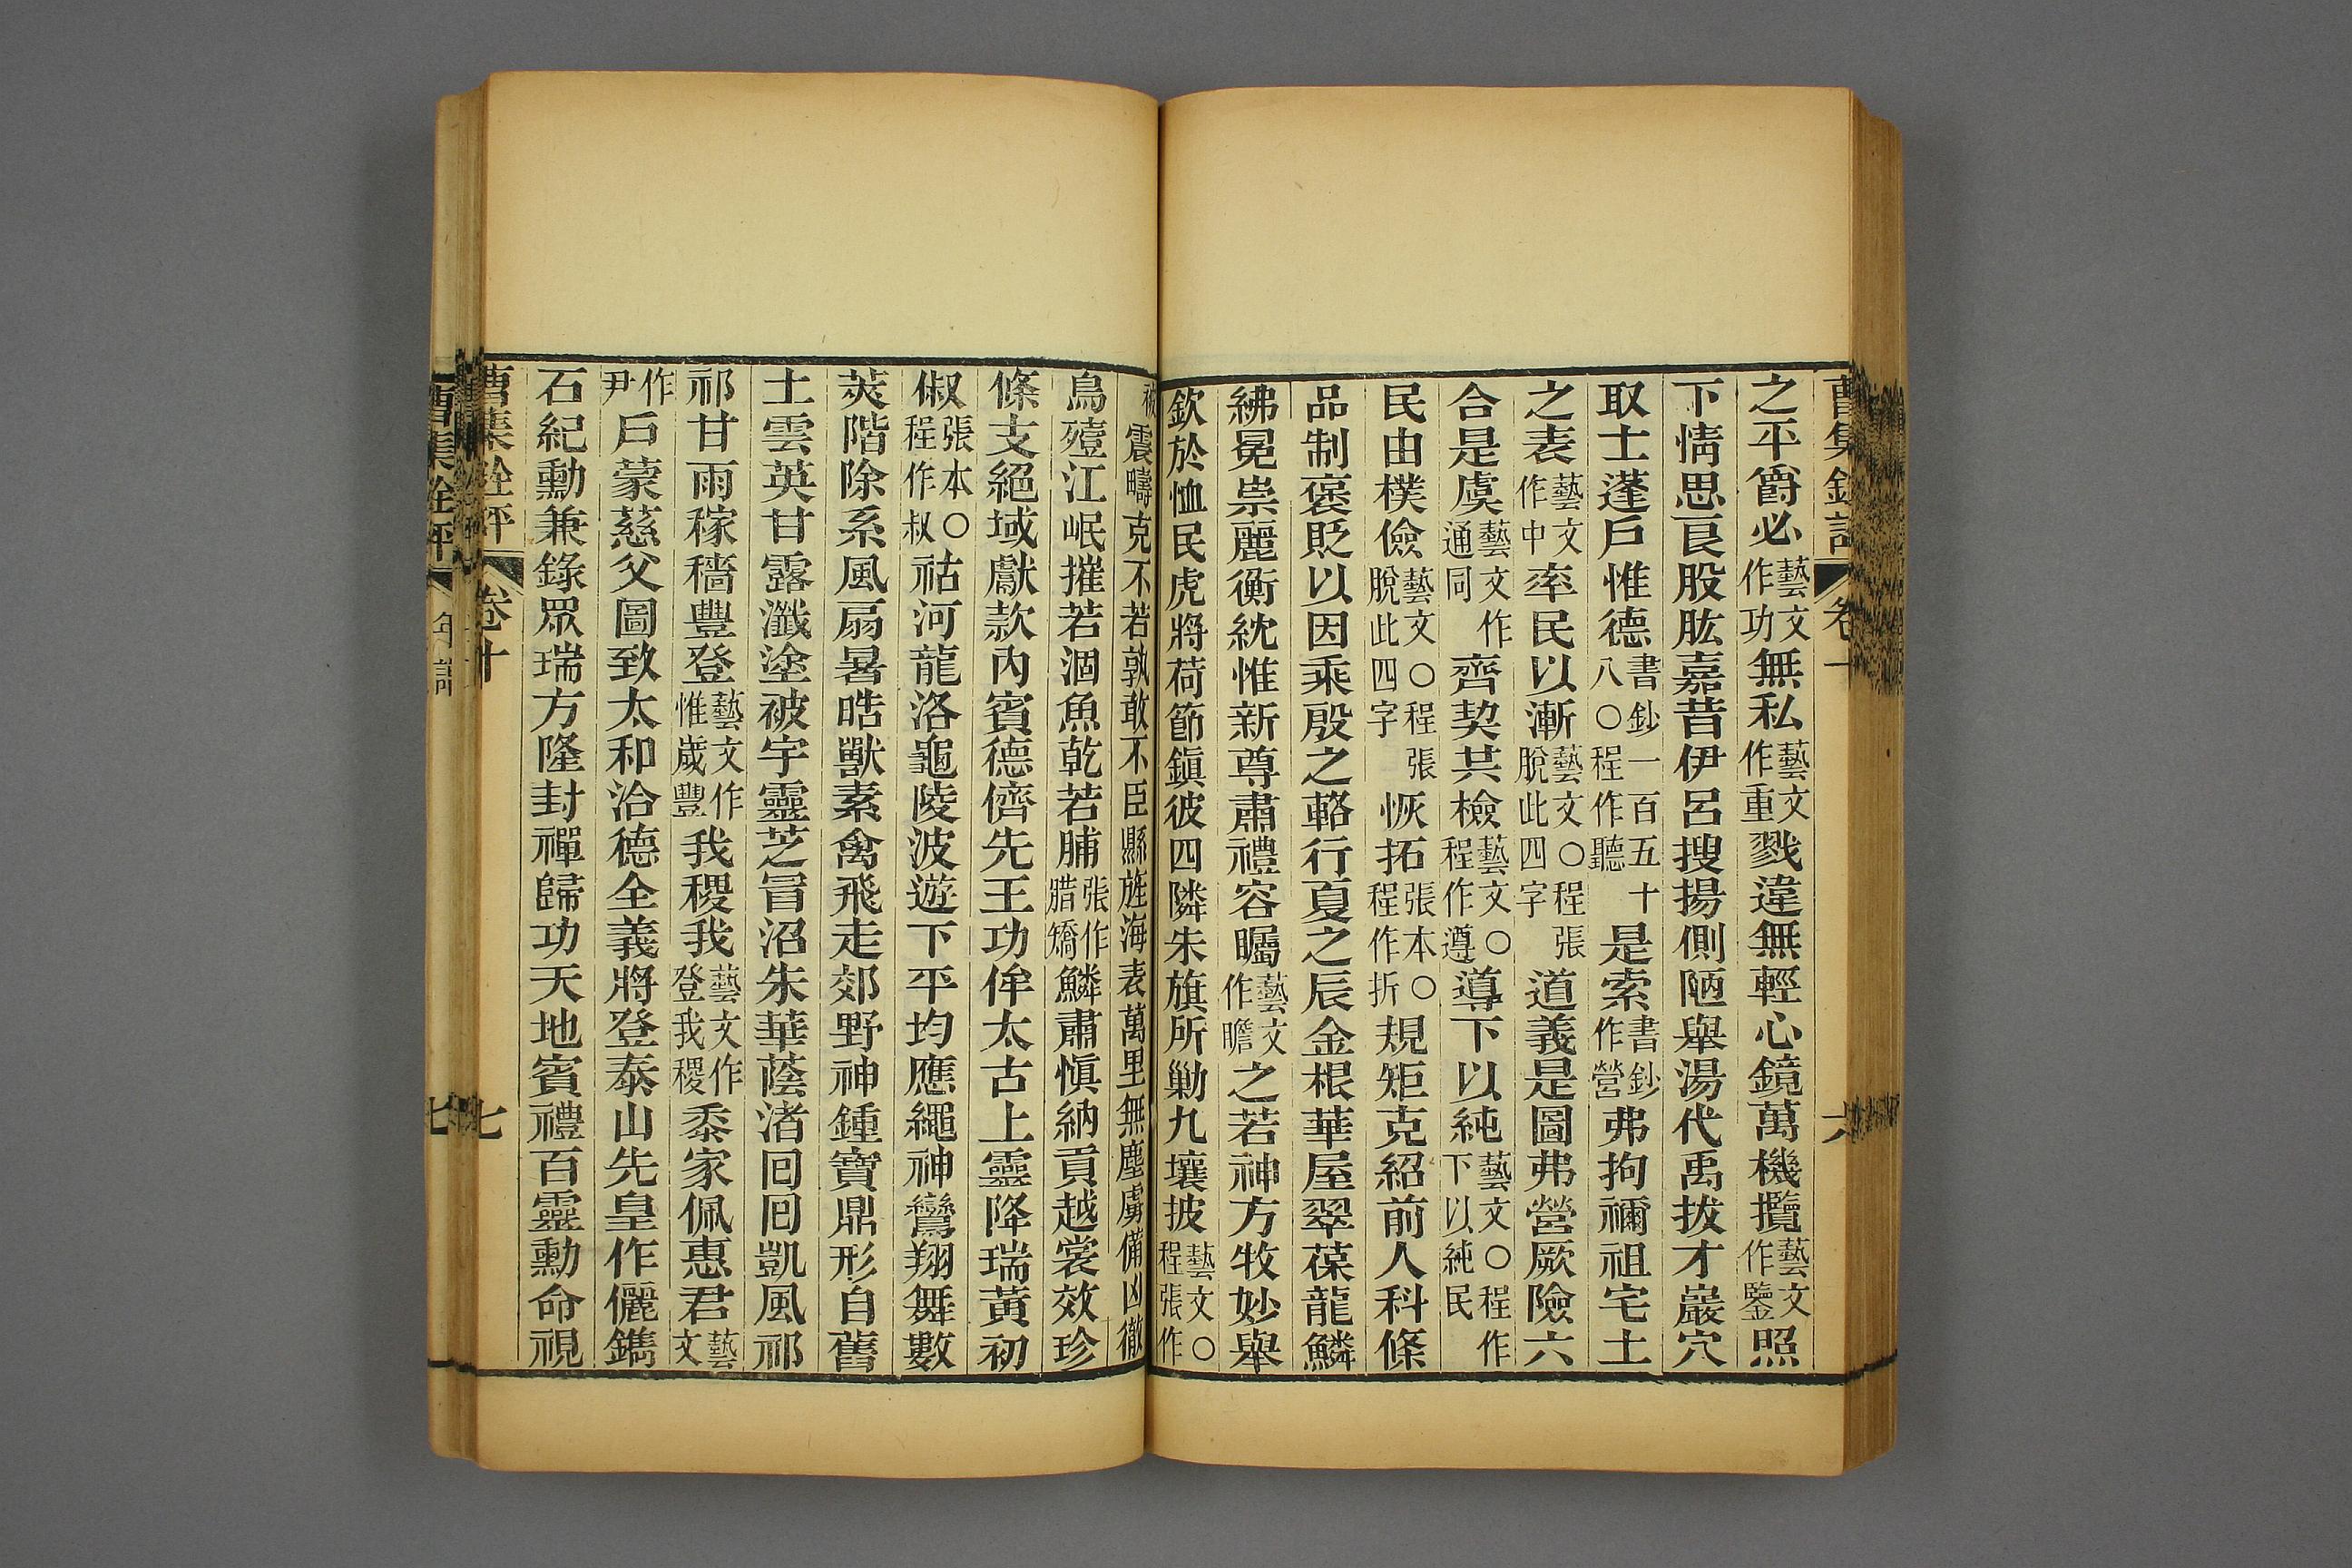 曹集銓評 卷十 六
之平爵必藝文作功無私藝文作重戮違無輕心鏡萬機攬藝文作鑒照
下情思良股肱嘉昔伊呂搜揚側陋舉湯代禹拔才巖穴
取士蓬戶惟德書鈔一百五十八○程作聽是索書鈔作營弗拘禰祖宅土
之表藝文作中率民以漸藝文○程張脫此四字道義是圖弗營厥險六
合是虞藝文作通同齊契共檢藝文○程作遵導下以純藝文○程作下以純民
民由樸儉藝文○程張脫此四字恢拓張本○程作折規矩克紹前人科條
品制褒貶以因乘殷之輅行夏之辰金根華屋翠葆龍鱗
紼冕崇麗衡紞惟新尊肅禮容矚藝文作瞻之若神方牧妙舉
欽於恤民虎將荷節鎮彼四隣朱旗所勦九壤披藝文○程張作
被震疇克不若孰敢不臣縣旌海表萬里無塵虜備凶徹
鳥殪江岷摧若涸魚乾若脯張作腊矯鱗肅愼納貢越裳效珍
條支絕域獻款內賓德儕先王功侔太古上靈降瑞黃初
俶張本○程作叔祜河龍洛龜陵波遊下平均應繩神鸞翔舞數
莢階除系風扇暑晧獸素禽飛走郊野神鍾寶鼎形自舊
土雲英甘露瀸塗被宇靈芝冒沼朱華蔭渚回回凱風祁
祁甘雨稼穡豐登藝文作惟歲豐我稷我藝文作登我稷黍家佩惠君藝文
作尹戶蒙慈父圖致太和洽德全義將登泰山先皇作儷鐫
石紀勳兼錄眾瑞方隆封禪歸功天地賓禮百靈勳命視
曹集銓評 卷十 七
曹集銓評 年譜 七